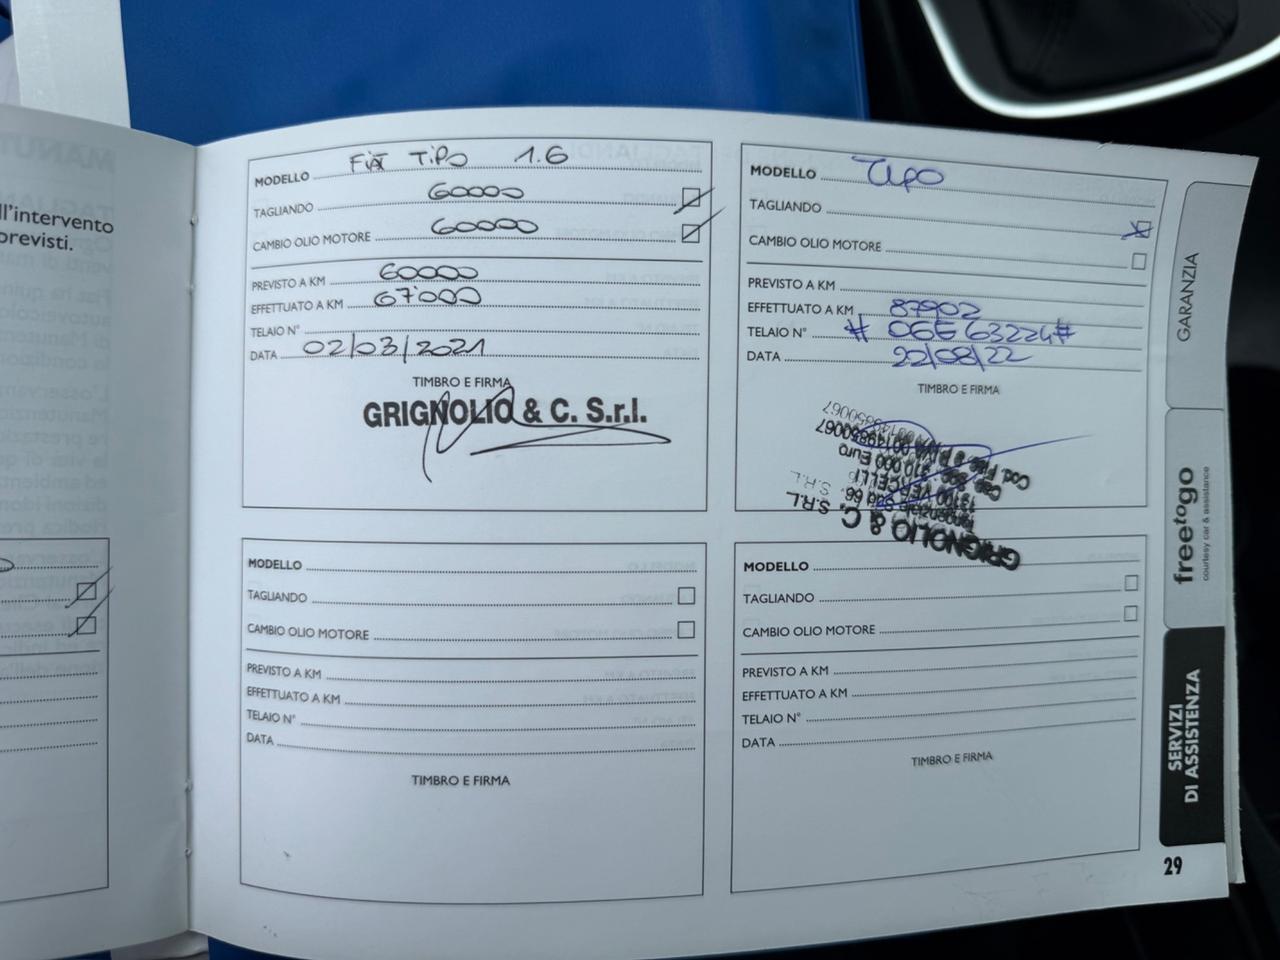 ll'intervento
previsti.
MODELLO FIAT TIPO 1.6
TAGLIANDO 60000
CAMBIO OLIO MOTORE 60000
PREVISTO A KM 60000
EFFETTUATO A KM 67000
TELAIO N°
DATA 02/03/2021
TIMBRO E FIRMA
GRIGNOLIO & C. S.r.l.
MODELLO Tipo
TAGLIANDO
CAMBIO OLIO MOTORE
PREVISTO A KM
EFFETTUATO A KM 87902
TELAIO N° # 06E63224#
DATA 22/08/22
TIMBRO E FIRMA
GRIGNOLIO & C. S.R.L.
13100 VERCELLI
Cod. Fisc. e P. IVA 00149850067
MODELLO
TAGLIANDO
CAMBIO OLIO MOTORE
PREVISTO A KM
EFFETTUATO A KM
TELAIO N°
DATA
TIMBRO E FIRMA
MODELLO
TAGLIANDO
CAMBIO OLIO MOTORE
PREVISTO A KM
EFFETTUATO A KM
TELAIO N°
DATA
TIMBRO E FIRMA
GARANZIA
freetogo
courtesy car & assistance
SERVIZI
DI ASSISTENZA
29